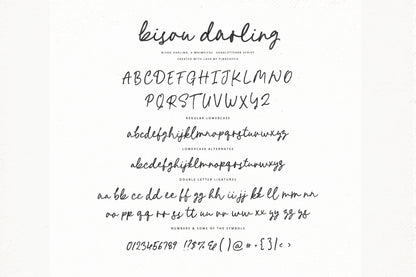 bisou darling
BISOU DARLING, A WHIMSICAL, HANDLETTERED SCRIPT
CREATED WITH LOVE BY
ABCDEFGHIJKLMNO
PQRSTUVWXYZ
REGULAR LOWERCASE
abcdefghijklmnopqrstuvwxyz
LOWERCASE ALTERNATES
abcdefghijklmnopqrstuvwxyz
DOUBLE LETTER LIGATURES
aa bb cc dd ee ff gg hh ii jj kk ll mm nn
oo pp qq rr ss tt uu vv ww xx yy zz ys
NUMBERS & SOME OF THE SYMBOLS
0123456789 !?$% & ( ) @ * • { } / < >